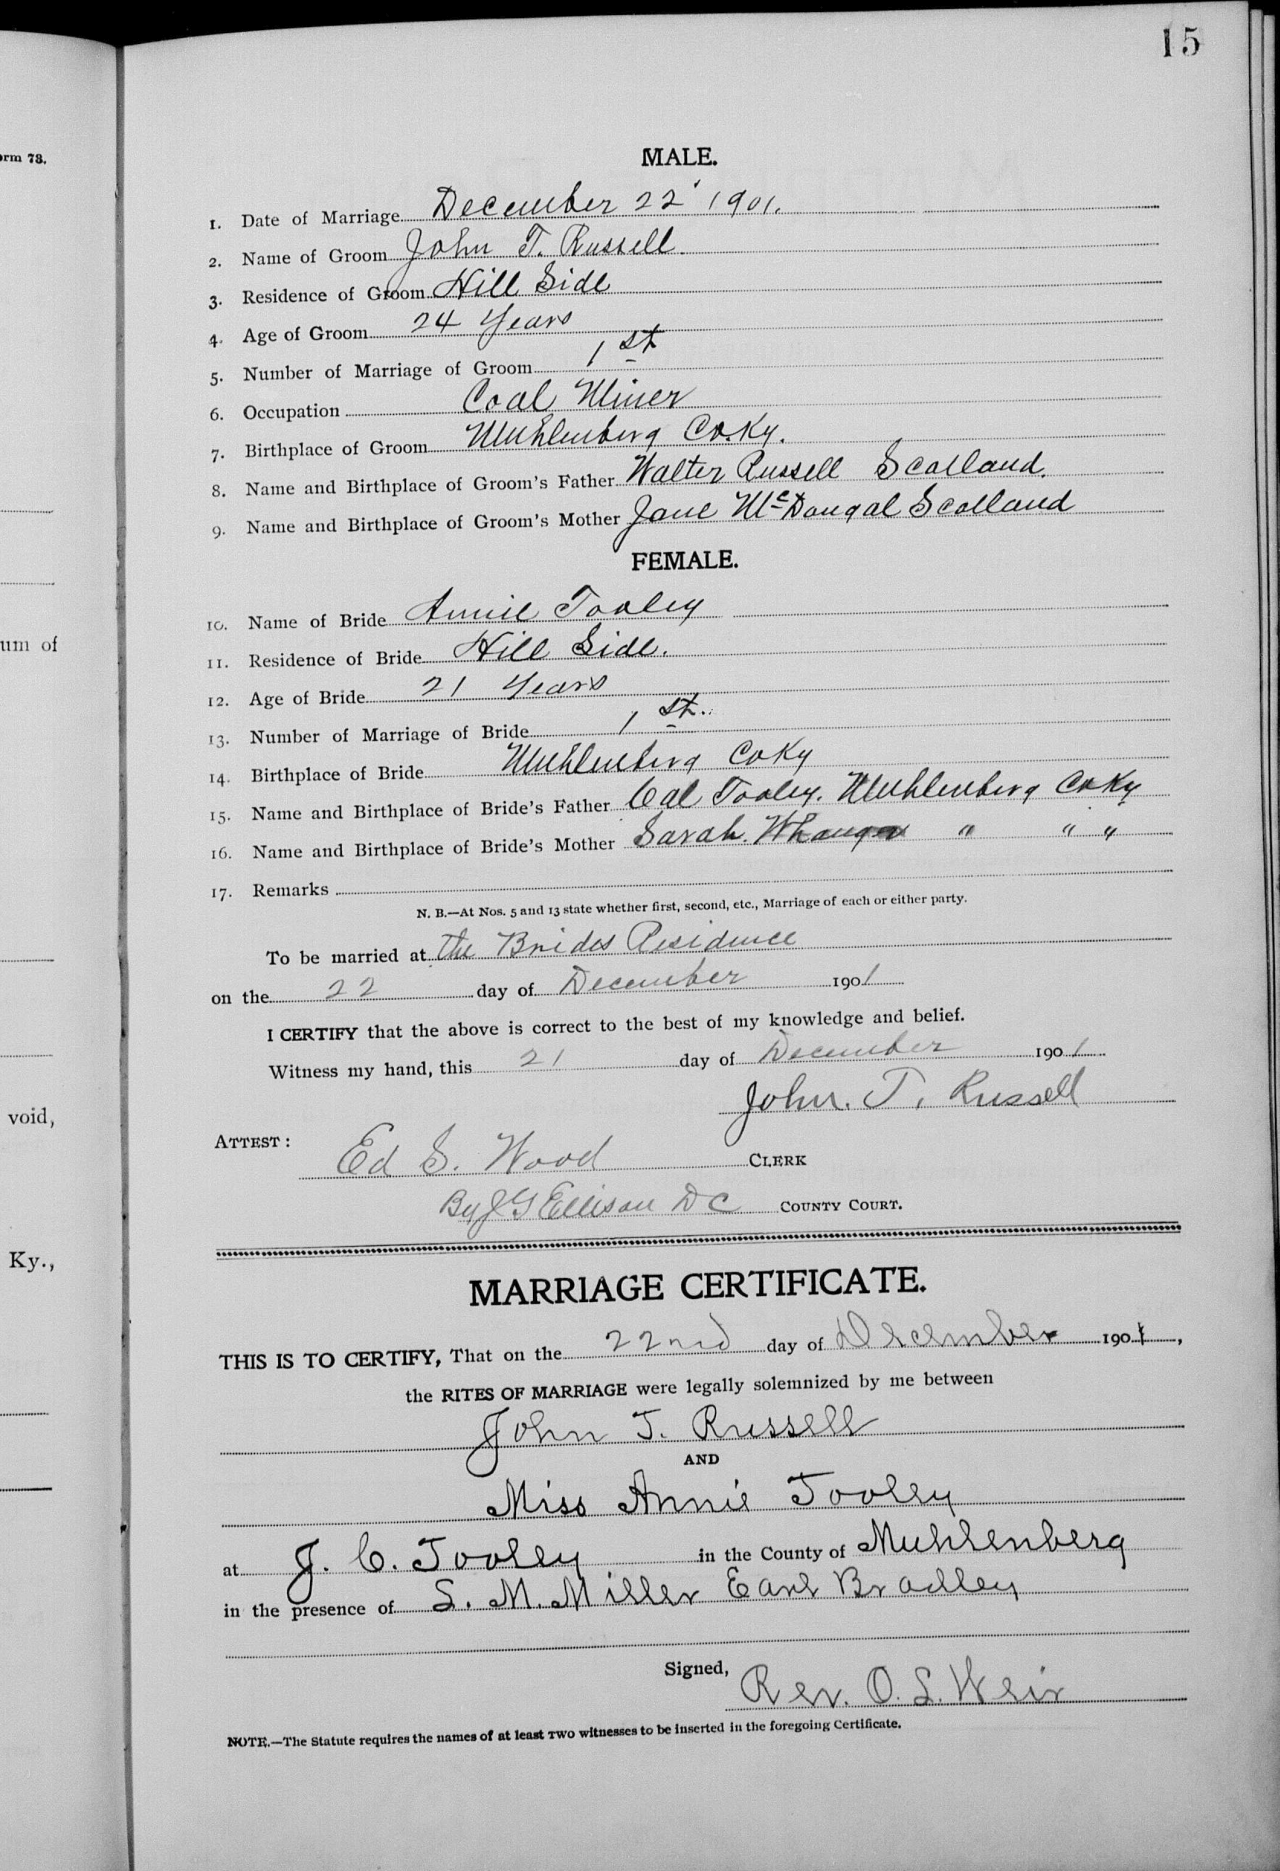 15
orm 78.
MALE.
1. Date of Marriage December 22' 1901.
2. Name of Groom John T. Russell.
3. Residence of Groom Hill Side
4. Age of Groom 24 Years
5. Number of Marriage of Groom 1st
6. Occupation Coal Miner
7. Birthplace of Groom Muhlenberg Co. Ky.
8. Name and Birthplace of Groom's Father Walter Russell Scotland.
9. Name and Birthplace of Groom's Mother Jane McDougal Scotland
FEMALE.
10. Name of Bride Annie Tooley
11. Residence of Bride Hill Side.
um of
12. Age of Bride 21 Years
13. Number of Marriage of Bride 1st.
14. Birthplace of Bride Muhlenberg Co Ky
15. Name and Birthplace of Bride's Father Cal Tooley. Muhlenberg Co Ky
16. Name and Birthplace of Bride's Mother Sarah. " " "
17. Remarks
N. B.—At Nos. 5 and 13 state whether first, second, etc., Marriage of each or either party.
To be married at the Brides Residence
on the 22 day of December 1901
I CERTIFY that the above is correct to the best of my knowledge and belief.
Witness my hand, this 21 day of December 1901
John. T. Russell
void,
ATTEST:
Ed S. Wood CLERK
By J G Ellison D C COUNTY COURT.
Ky.,
MARRIAGE CERTIFICATE.
THIS IS TO CERTIFY, That on the 22nd day of December 1901,
the RITES OF MARRIAGE were legally solemnized by me between
John T. Russell
AND
Miss Annie Tooley
at J. C. Tooley in the County of Muhlenberg
in the presence of S. M. Miller Earl Bradley
Signed, Rev. O. L. Weir
NOTE.—The Statute requires the names of at least TWO witnesses to be inserted in the foregoing Certificate.